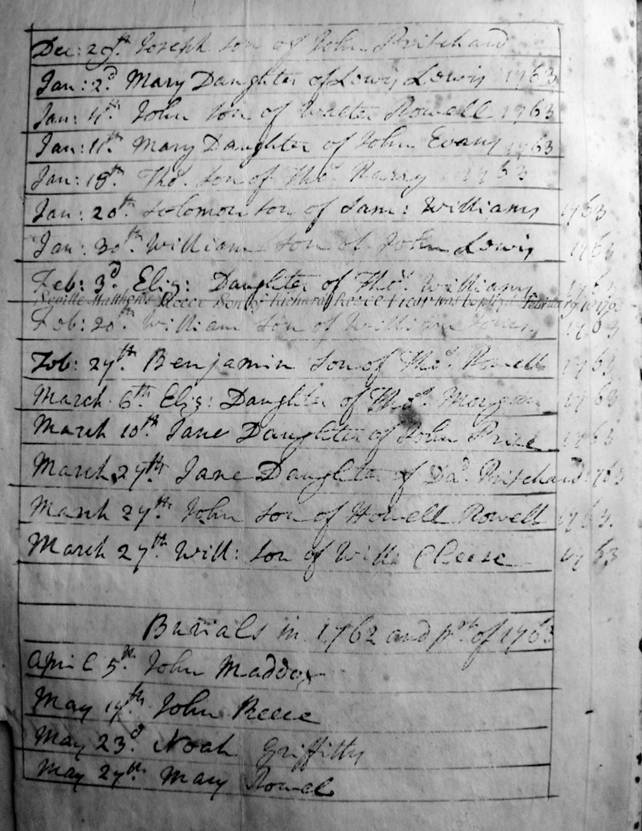 Dec: 29th. Joseph son of John Pritchard
Jan: 2d. Mary Daughter of Lewis Lewis 1763
Jan: 4th. John son of Walter Powell 1763
Jan: 11th. Mary Daughter of John Evans 1763
Jan: 18th. Tho: son of Tho: Harry 1763
Jan: 20th. Solomon son of Sam: Williams 1763
Jan: 30th. William son of John Lewis 1763
Feb: 3d. Eliz: Daughter of Tho: Williams 1763
Reece Son of Richard Reece
Feb: 20th. William son of William 1763
Feb: 27th. Benjamin son of Tho: Powell 1763
March 6th. Eliz: Daughter of Tho: Morgan 1763
March 10th. Jane Daughter of John Price 1763
March 27th. Jane Daughter of Da: Pritchard 1763
March 27th. John son of Howell Powell 1763.
March 27th. Will: son of Will: Reese 1763
Burials in 1762 and pt. of 1763
April 5th. John Maddox
May 19th. John Reece
May 23d. Noah Griffiths
May 27th. Mary Powel